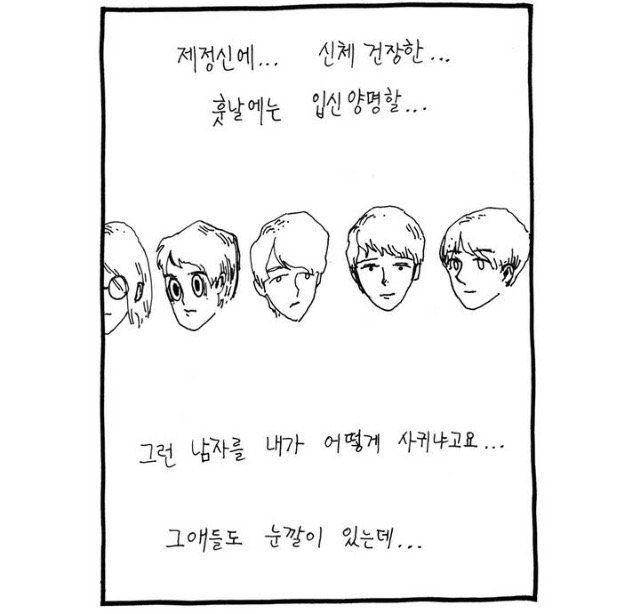 제정신에... 신체 건장한...
훗날에는 입신양명할...
그런 남자를 내가 어떻게 사귀냐고요...
그애들도 눈깔이 있는데...